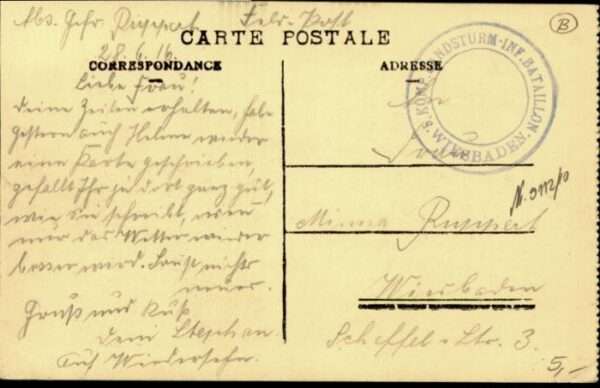 Abs. Gefr. Ruppert Feld-Post
B
28.6.16.
CARTE POSTALE
CORRESPONDANCE
ADRESSE
Liebe Frau!
Deine Zeilen erhalten, habe
gestern auch Helene wieder
eine Karte geschrieben,
gefällt Ihr ja dort ganz gut,
wie sie schreibt, wenn
nur das Wetter wieder
besser wird. Sonst nichts
neues.
Gruß und Kuß
dein Stephan.
Auf Wiedersehn.
An
Frau
Minna Ruppert
Wiesbaden
Scheffel-Str. 3.
LANDSTURM-INF. BATAILLON WIESBADEN
5,-